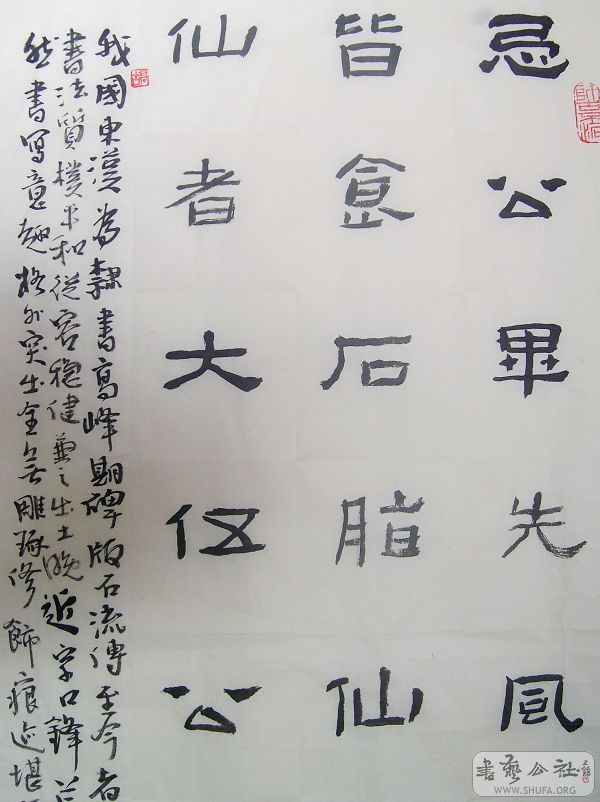 忌公畢先風
皆食石脂仙
仙者大伍公
我國東漢為隸書高峰期碑版石流傳至今者
書法質樸平和從容穩健兼之出土晚近字口鋒
然書寫意趣格外突出全無雕琢修飾痕迹堪
書藝公社
WWW.SHUFA.ORG